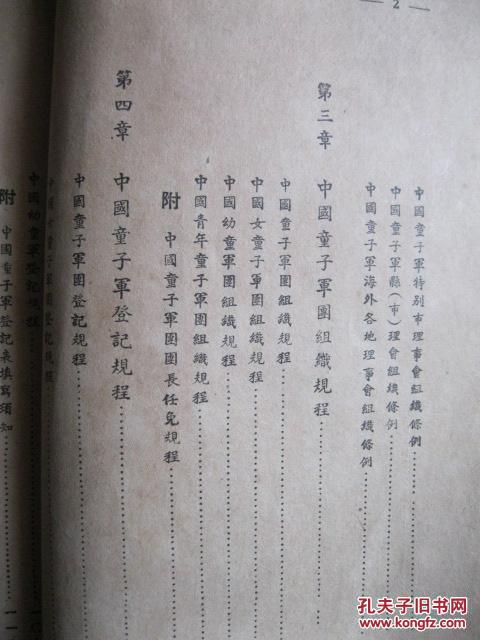 — 2 —
中國童子軍特別市理事會組織條例
中國童子軍縣(市)理會組織條例
中國童子軍海外各地理事會組織條例
第三章 中國童子軍團組織規程
中國童子軍團組織規程
中國女童子軍團組織規程
中國幼童軍團組織規程
中國青年童子軍團組織規程
附 中國童子軍團團長任免規程
第四章 中國童子軍登記規程
中國童子軍團登記規程
中國女童子軍團登記規程
中國幼童軍登記規程
附 中國童子軍登記表填寫須知
孔夫子旧书网
www.kongfz.com